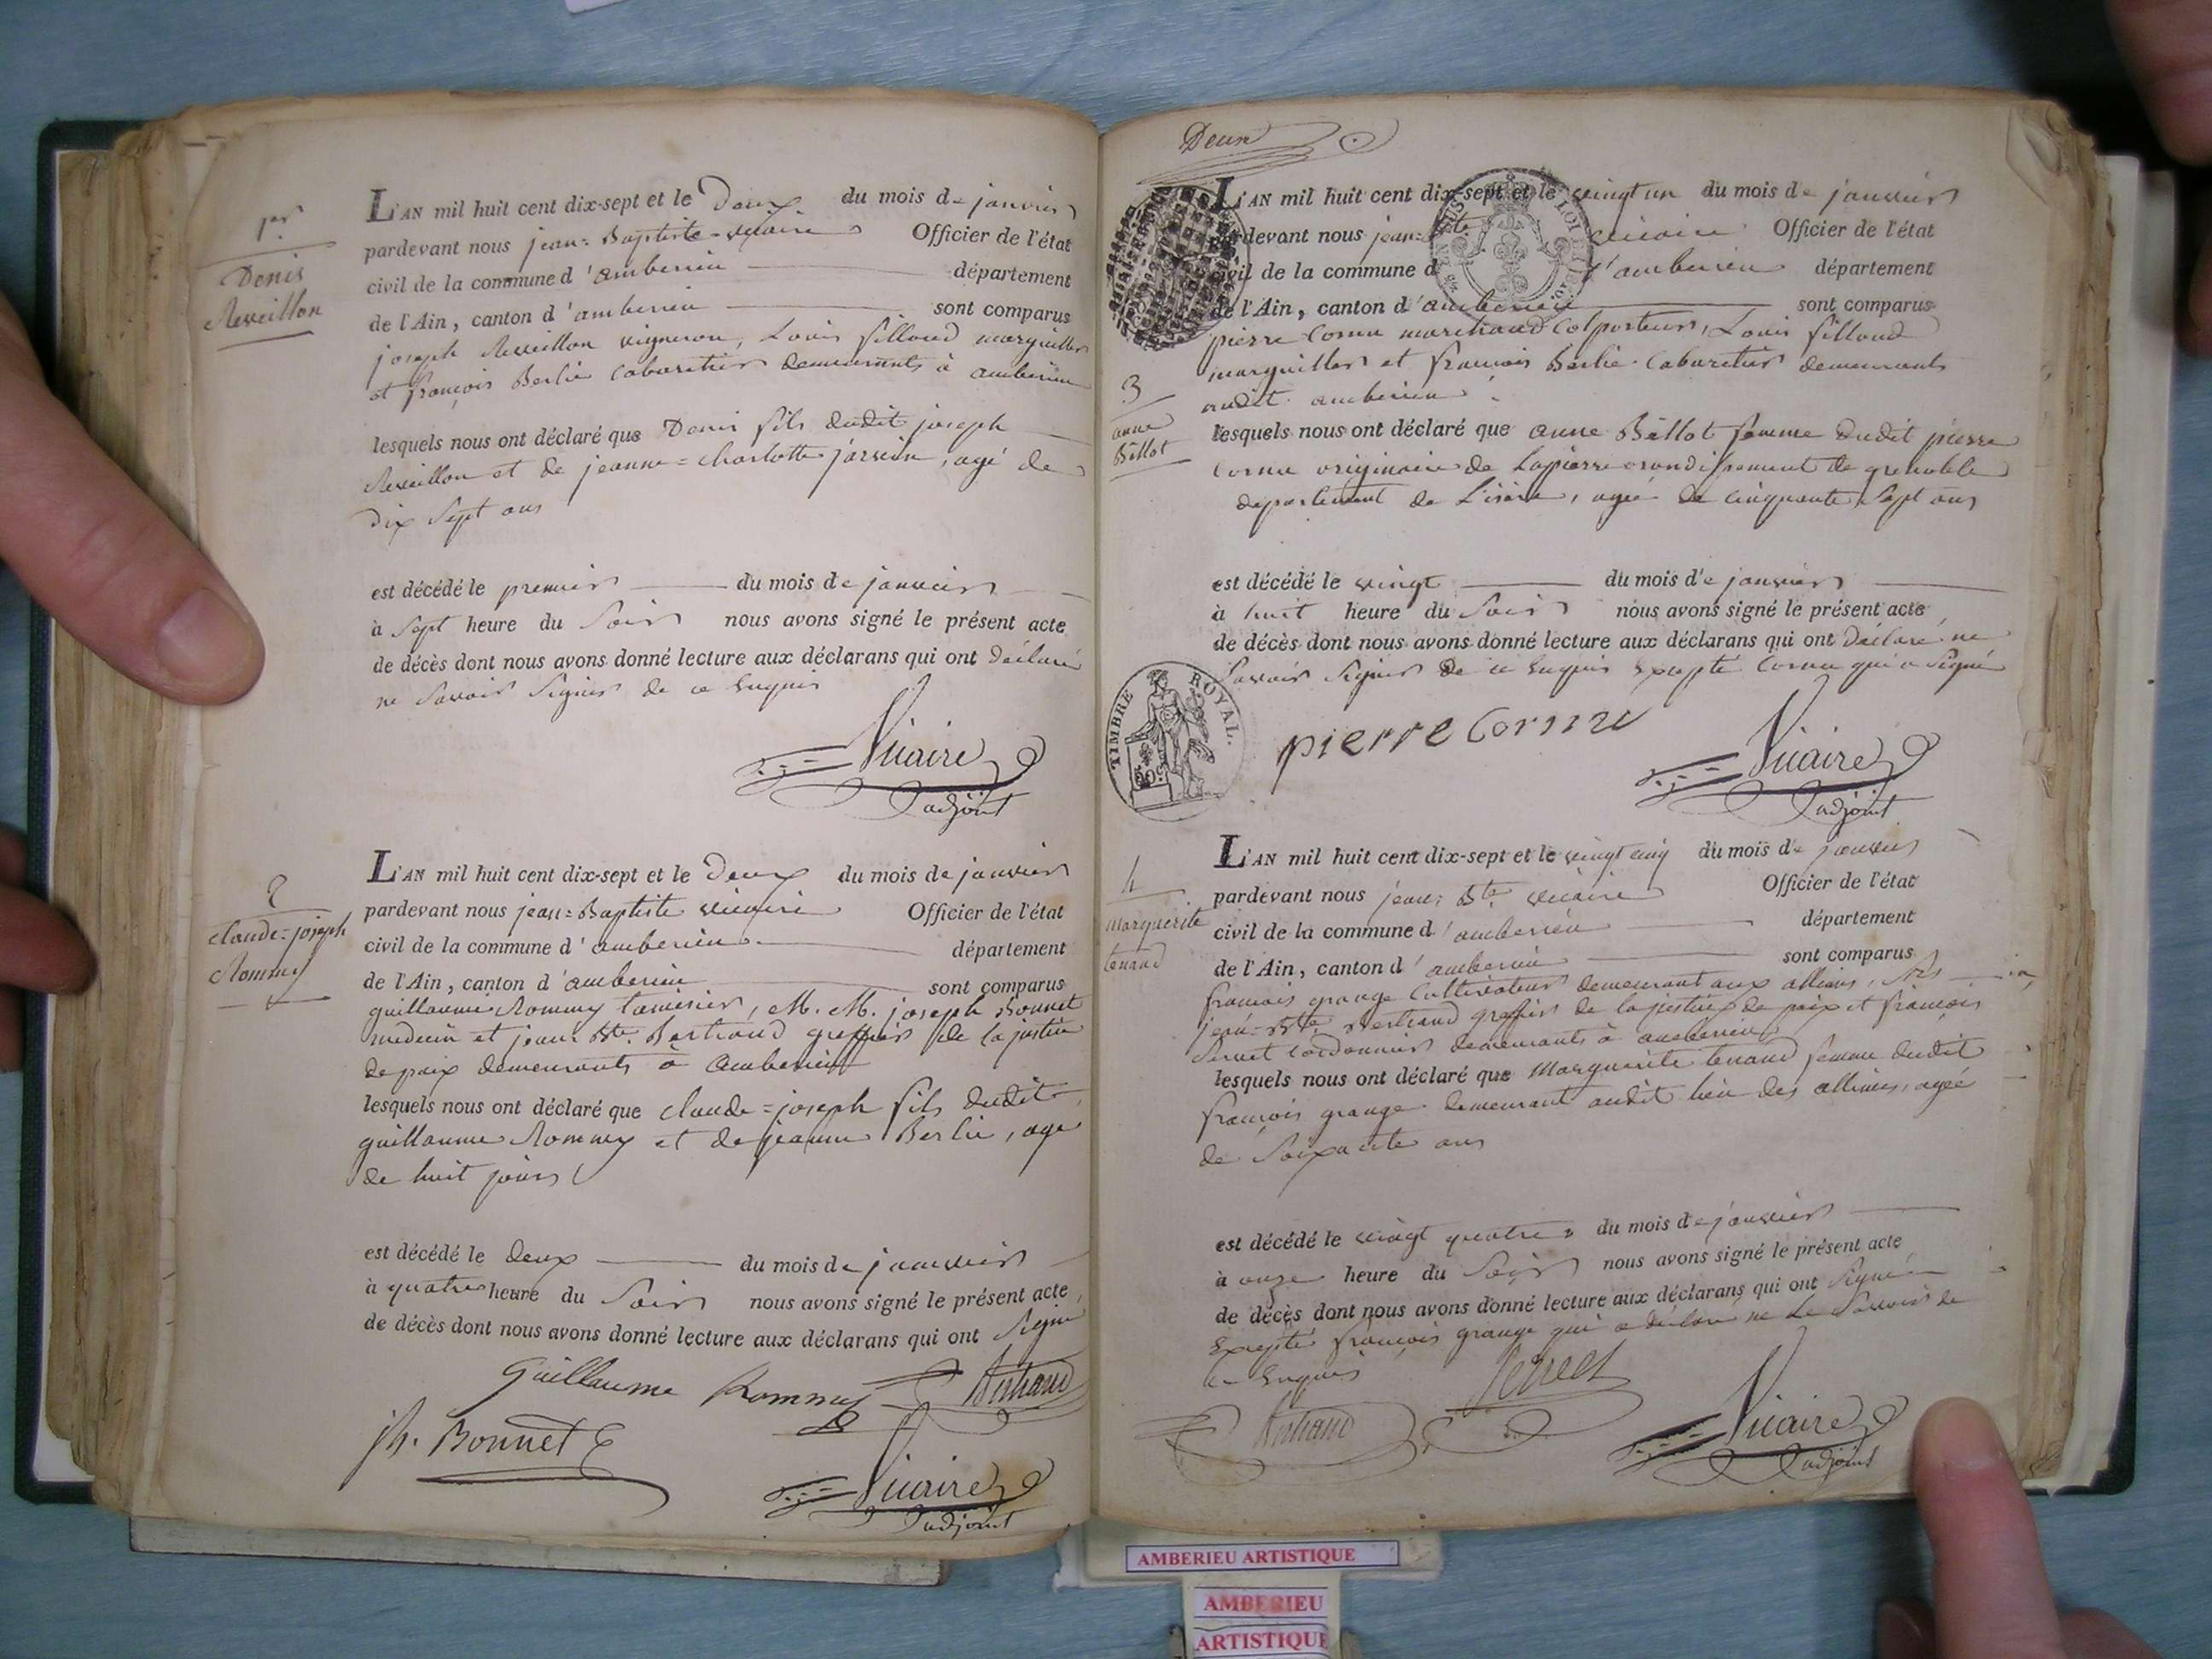 1er
Denis
Reveillon
L'AN mil huit cent dix-sept et le Deux du mois de janvier
pardevant nous jean=Baptiste vicaire Officier de l'état
civil de la commune d'amberieu département
de l'Ain, canton d'amberieu sont comparus
joseph Reveillon vigneron, Louis filloud marguiller
et françois Berlie Cabaretier demeurants à amberieu
lesquels nous ont déclaré que Denis fils dudit joseph
Reveillon et de jeanne=charlotte, agé de
dix sept ans
est décédé le premier du mois de janvier
à sept heure du soir nous avons signé le présent acte
de décès dont nous avons donné lecture aux déclarans qui ont déclaré
ne savoir signer de ce enquis
Vicaire
adjoint
2
claude=joseph
Rommy
L'AN mil huit cent dix-sept et le Deux du mois de janvier
pardevant nous jean=Baptiste vicaire Officier de l'état
civil de la commune d'amberieu département
de l'Ain, canton d'amberieu sont comparus
guillaume Rommy, M. M. joseph Bonnet
medecin et jean Bte. Bertrand greffier de la justice
de paix demeurants à amberieu
lesquels nous ont déclaré que claude=joseph fils dudit
guillaume Rommy et de jeanne Berlie, agé
de huit jours
est décédé le deux du mois de janvier
à quatre heure du soir nous avons signé le présent acte
de décès dont nous avons donné lecture aux déclarans qui ont signé
Guillaume Rommy
Bertrand
jh. Bonnet
Vicaire
adjoint
Deux
L'AN mil huit cent dix-sept et le vingt un du mois de janvier
pardevant nous jean=Bte vicaire Officier de l'état
civil de la commune d'amberieu département
de l'Ain, canton d'amberieu sont comparus
pierre Cornu marchand Colporteur, Louis filloud
marguiller et françois Berlie Cabaretier demeurants
audit amberieu
3
anne
Billot
lesquels nous ont déclaré que anne Billot femme dudit pierre
Cornu originaire de Lapierre arrondissement de grenoble
departement de L'isère, agée de cinquante sept ans
est décédé le vingt du mois de janvier
à huit heure du soir nous avons signé le présent acte
de décès dont nous avons donné lecture aux déclarans qui ont déclaré ne
savoir signer de ce enquis excepté Cornu qui a signé
TIMBRE ROYAL.
pierre Cornu
Vicaire
adjoint
4
marguerite
tenand
L'AN mil huit cent dix-sept et le vingt cinq du mois de janvier
pardevant nous jean= Bte vicaire Officier de l'état
civil de la commune d'amberieu département
de l'Ain, canton d'amberieu sont comparus
françois grange Cultivateur demeurant aux allimes,
jean=Bte Bertrand greffier de la justice de paix et françois
Servet cordonnier demeurants à amberieu
lesquels nous ont déclaré que marguerite tenand femme dudit
françois grange demeurant audit lieu des allimes, agée
de soixante ans
est décédé le vingt quatre du mois de janvier
à onze heure du soir nous avons signé le présent acte
de décès dont nous avons donné lecture aux déclarans qui ont signé
excepté françois grange qui a déclaré ne le savoir de
ce enquis
Servet
Bertrand
Vicaire
adjoint
AMBERIEU ARTISTIQUE
AMBERIEU
ARTISTIQUE